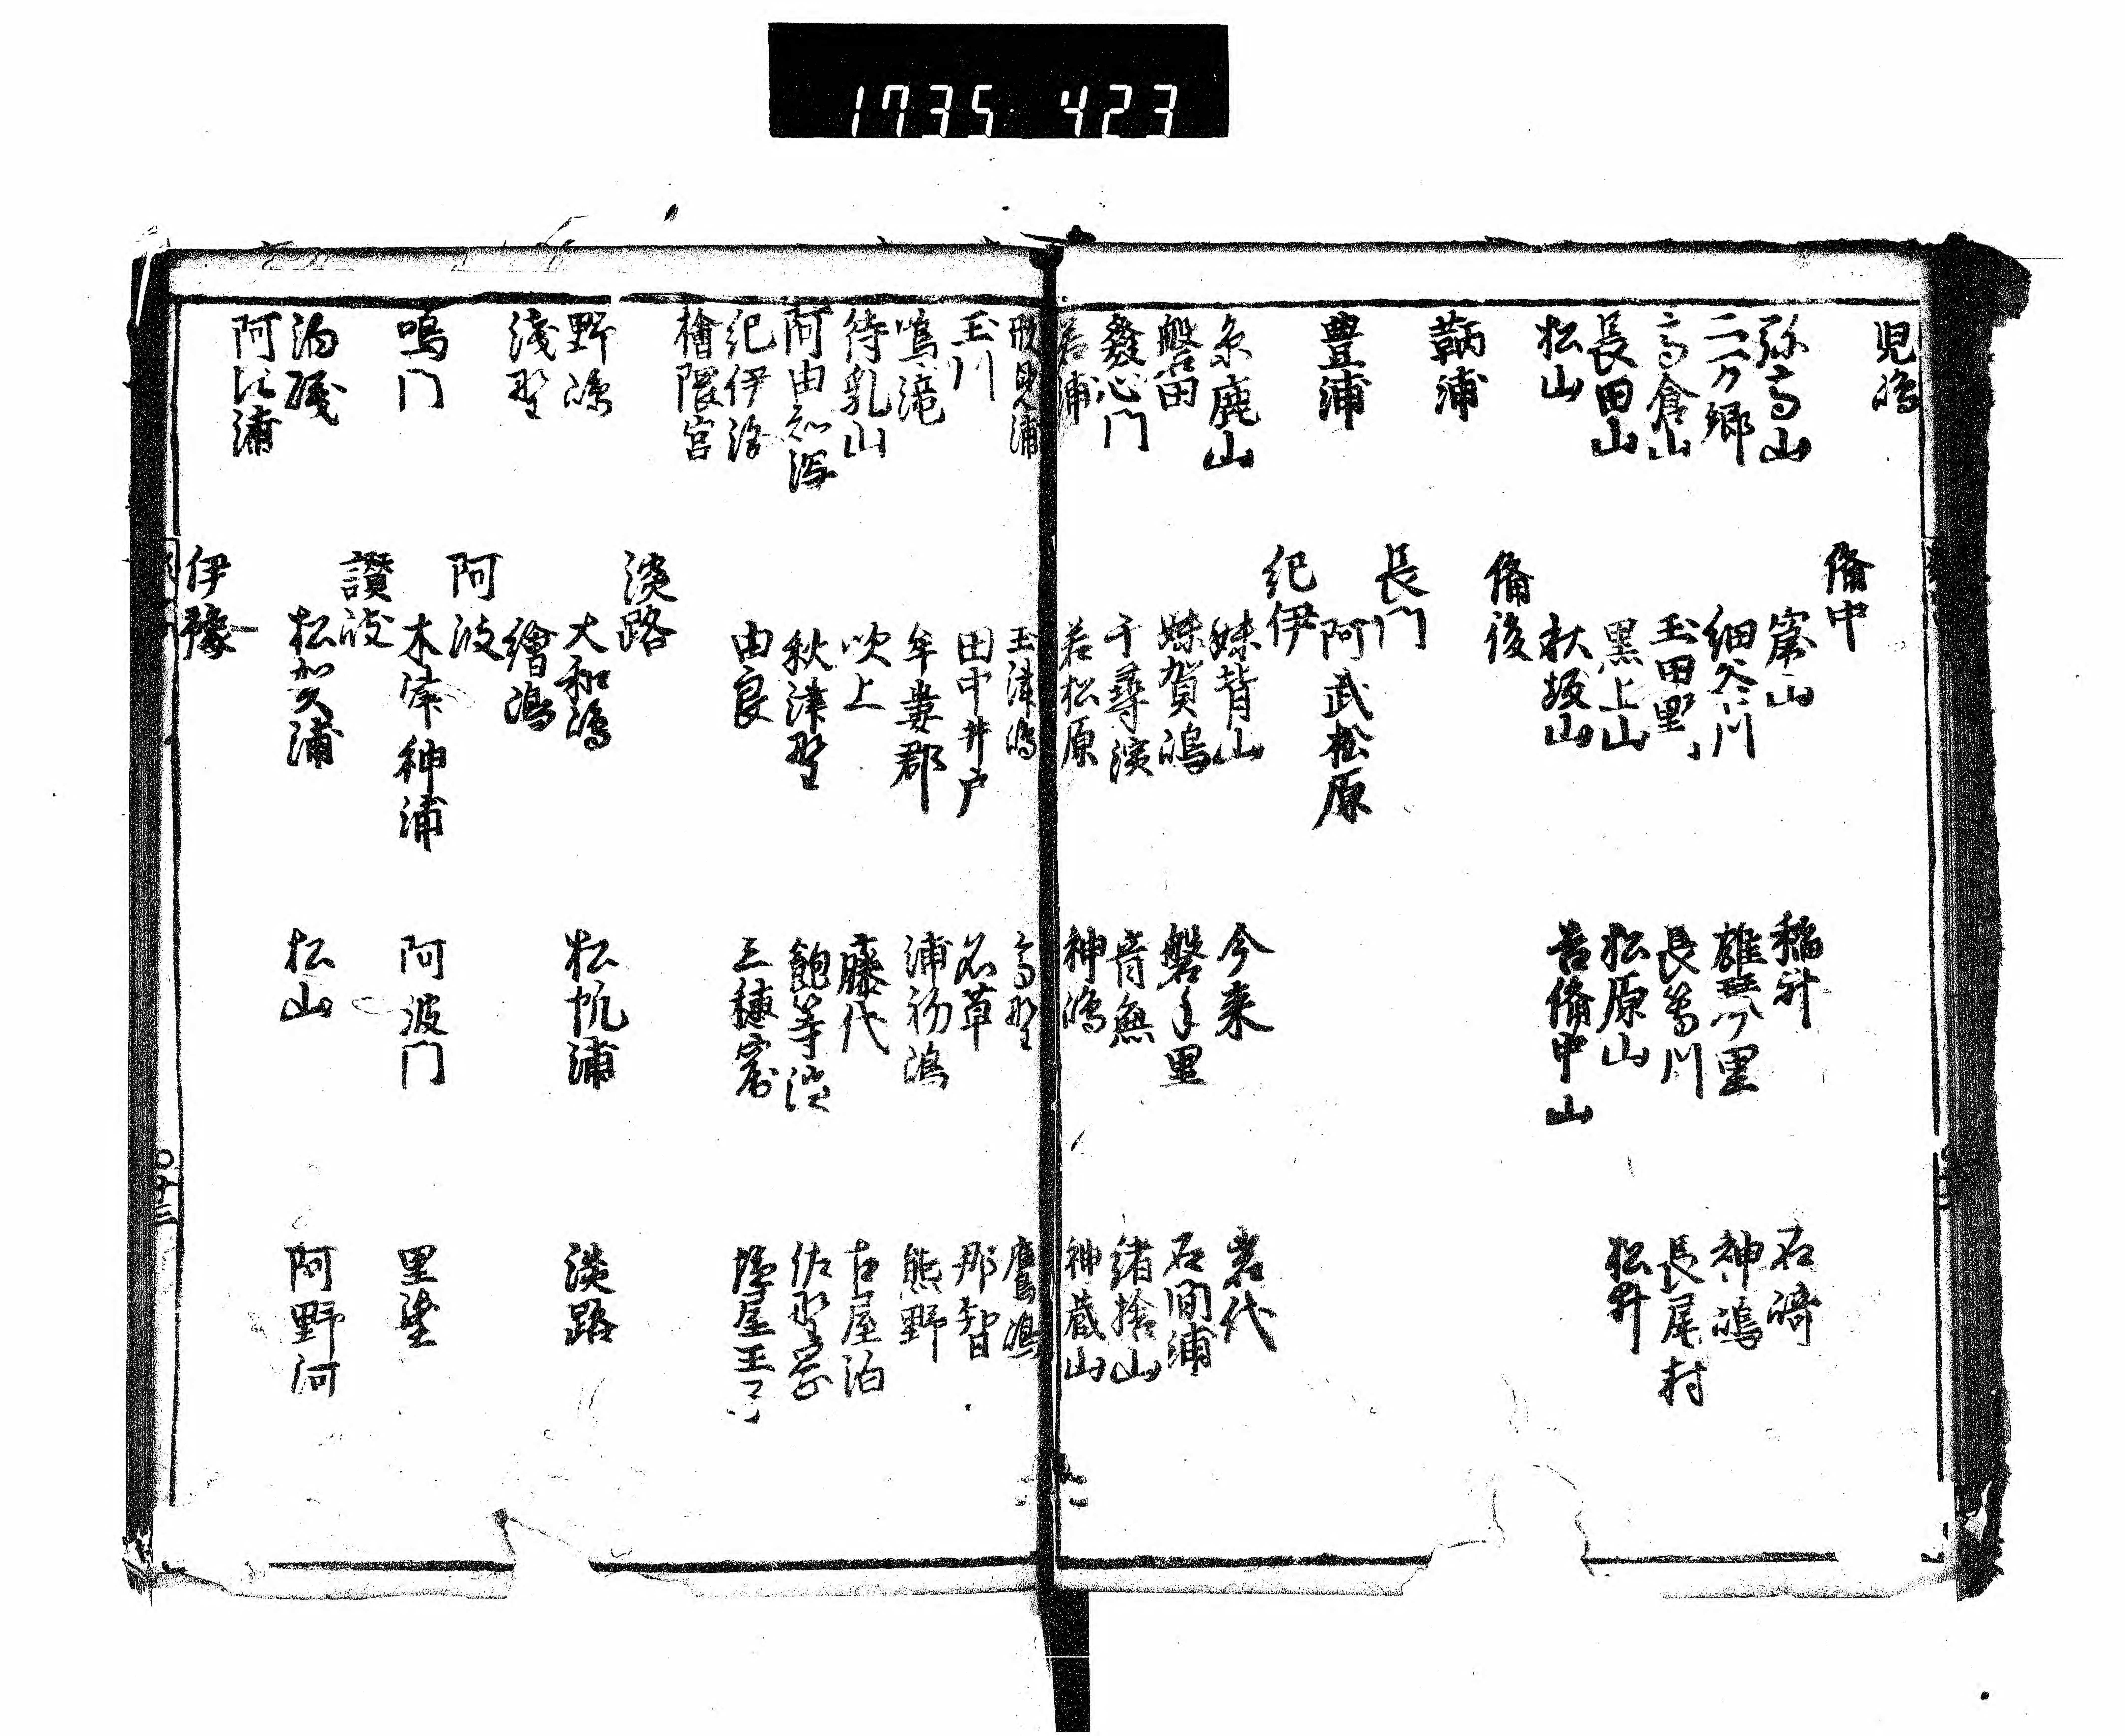 1735 423
児嶋
備中
弥高山 窟山 稲井 石﨑
二万郷 細谷川 雄琴ノ里 神嶋
高倉山 玉田野 長等川 長尾村
長田山 黒上山 松原山 松井
松山 秋坂山 吉備中山
備後
鞆浦
長門
豊浦 阿武松原
紀伊
糸鹿山 妹背山 今来 岩代
磐田 妹賀嶋 磐手里 石間浦
發心門 千尋濱 音無 緒捨山
若浦 若松原 神嶋 神蔵山
形見浦 玉津嶋 高野 鷹嶋
玉川 田中井戸 名草 那智
鳴滝 牟婁郡 浦初嶋 熊野
待乳山 吹上 藤代 古屋泊
阿由知潟 秋津野 飽等濱 佐野岡
紀伊海 由良 三穂窟 塩屋王子
檜隈宮
淡路
野嶋 大和嶋 松帆浦 淡路
淺野 繪嶋
阿波
鳴门 木津神浦 阿波门 里蜑
讃岐
泊磯 松加久浦 松山 阿野河
阿江浦
伊豫